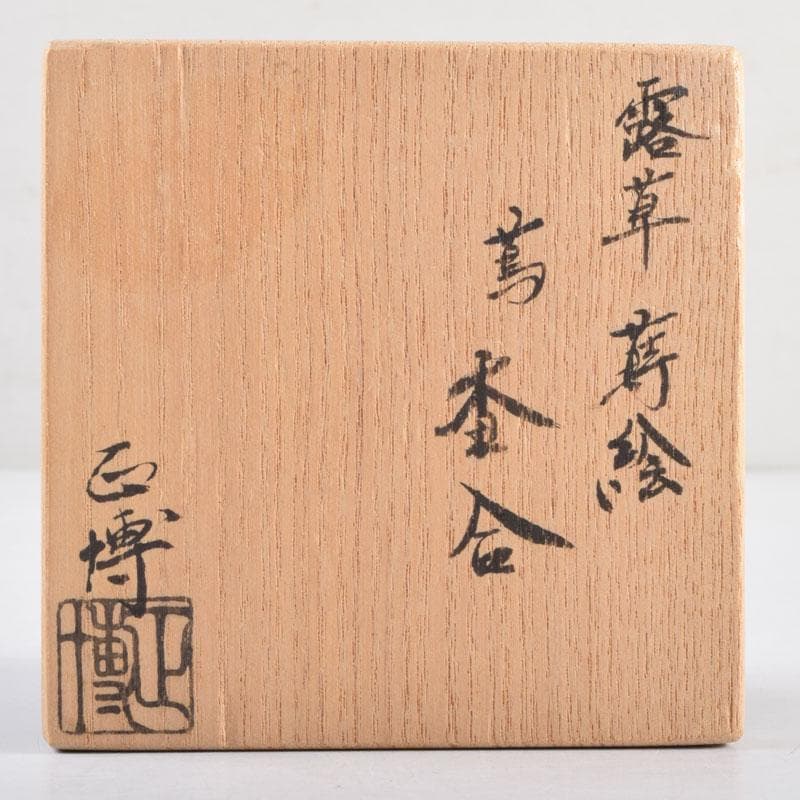 露草蒔絵
蔦香合
正博
正博